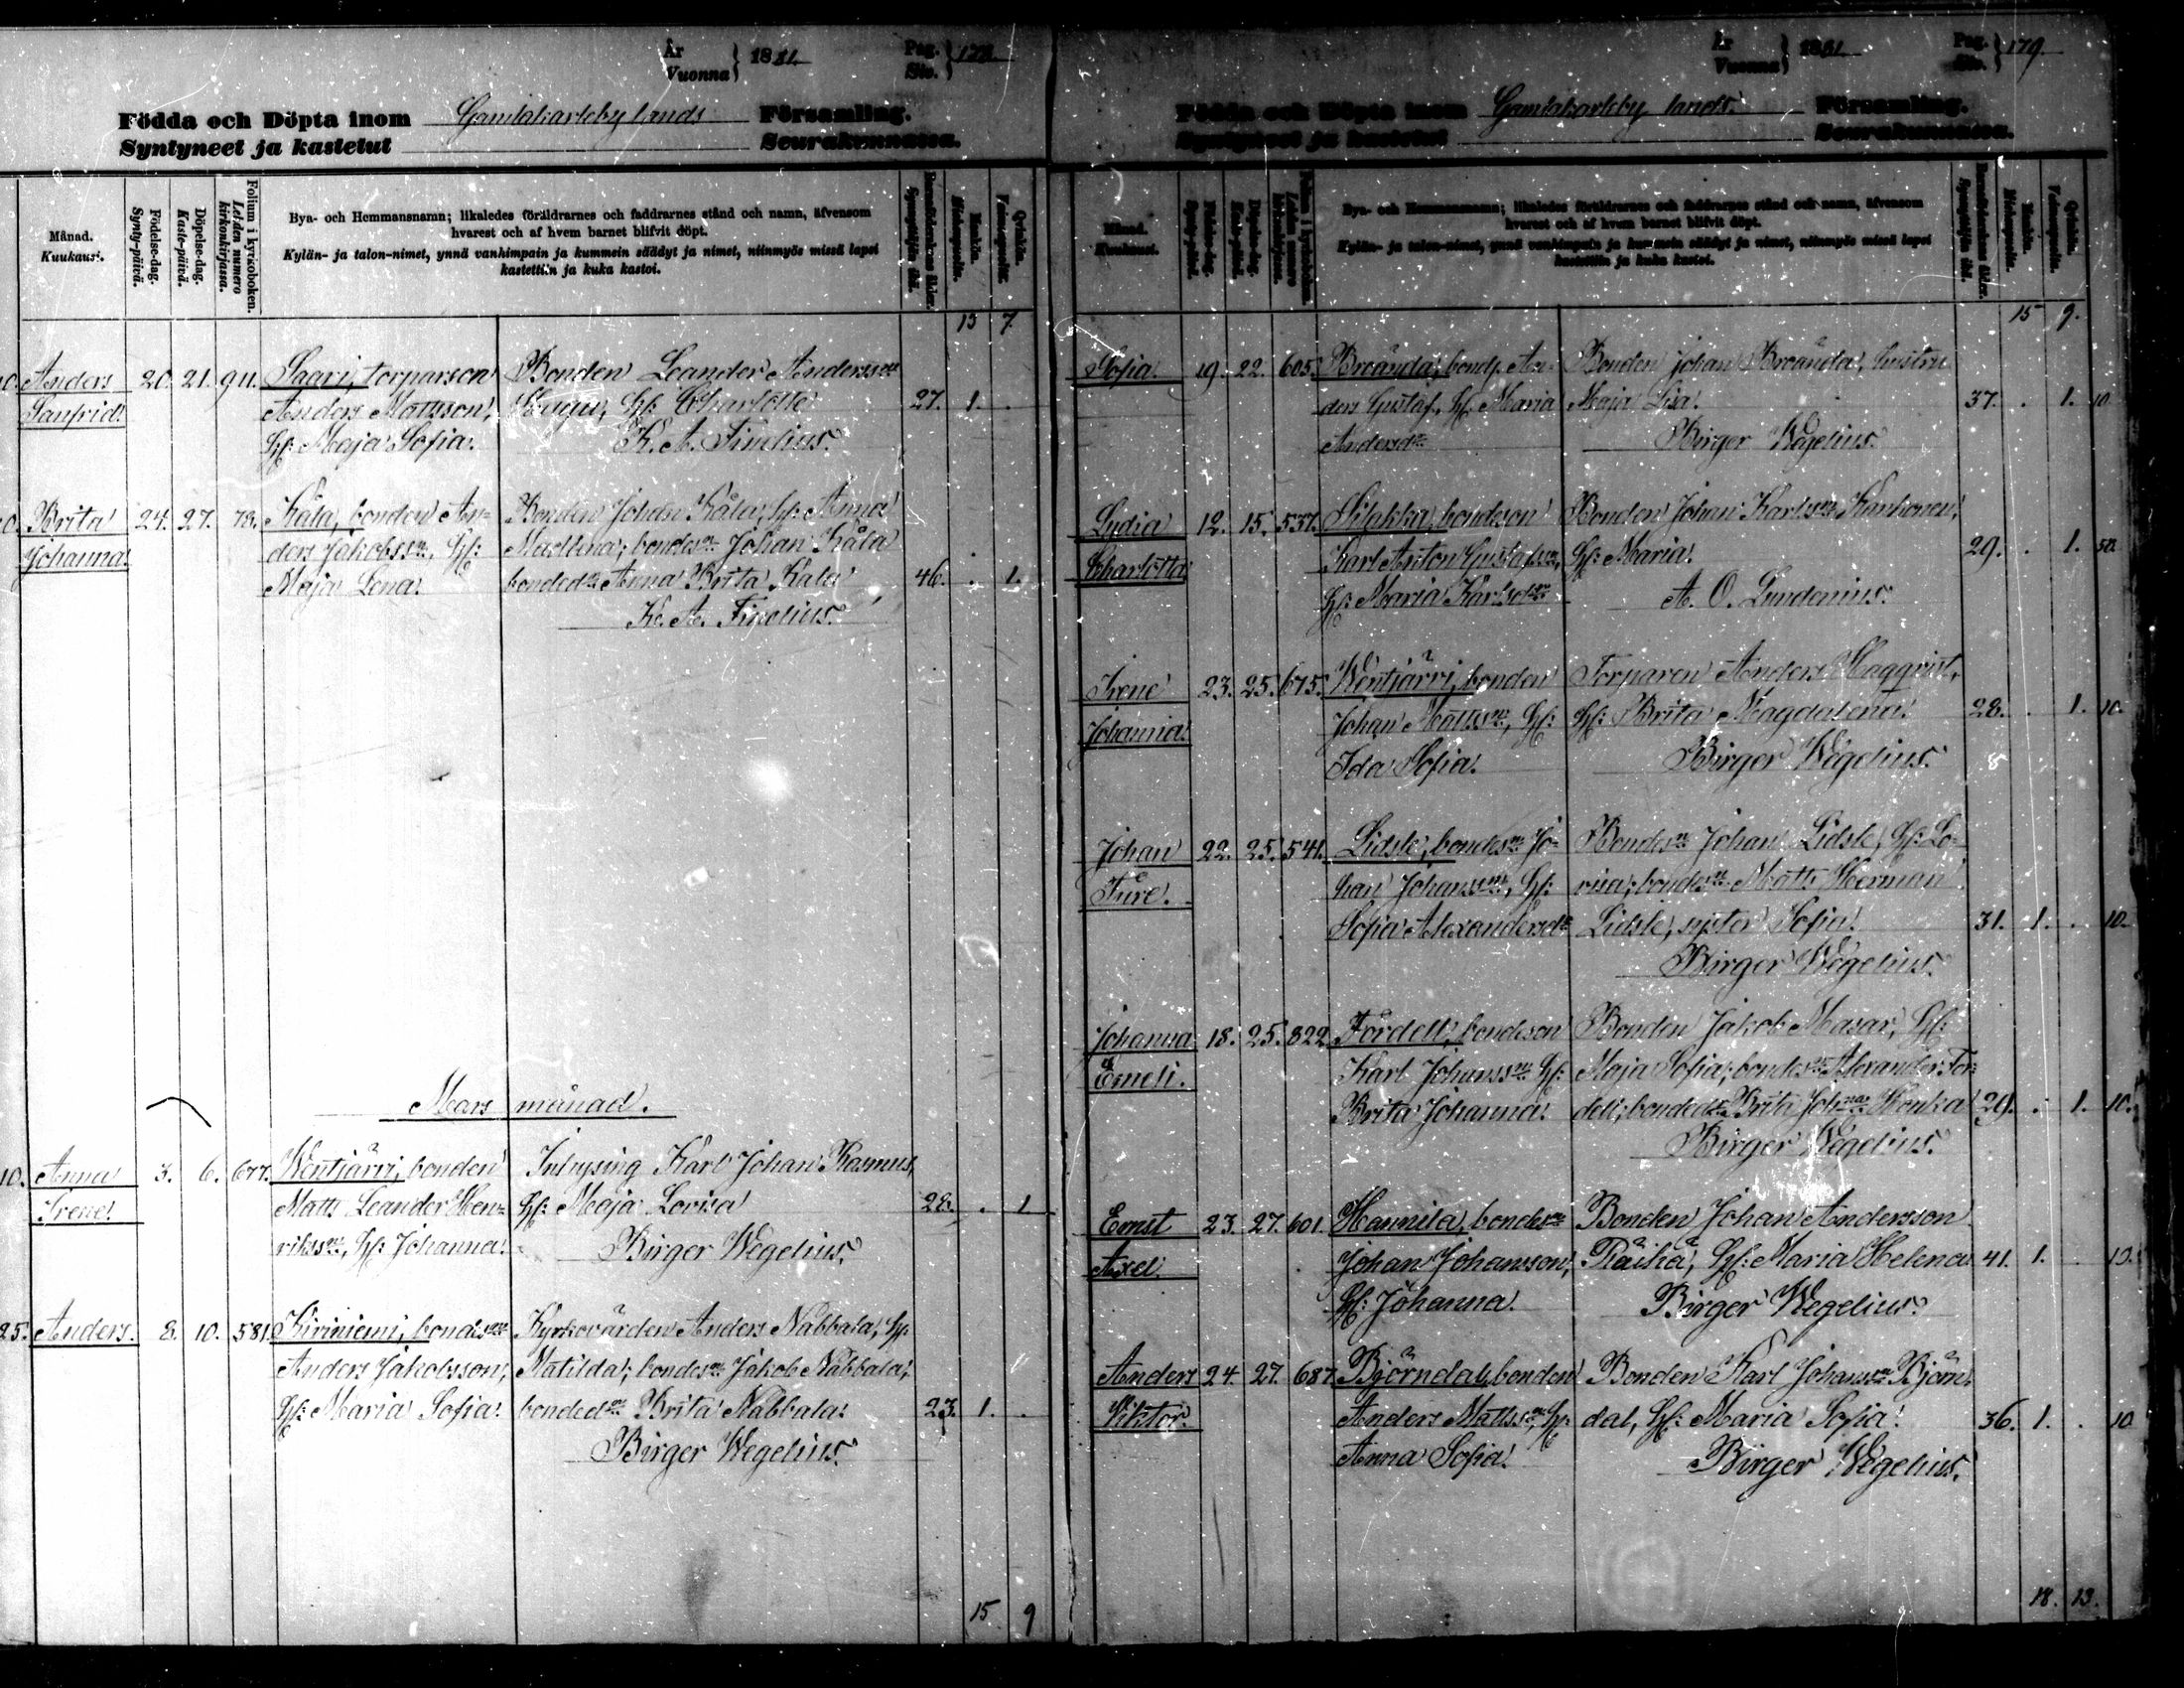 År
Vuonna } 1881.
Pag.
Siv. } 178.
Födda och Döpta inom Gamlakarleby lands Församling.
Syntyneet ja kastetut Seurakunnassa.
Månad.
Kuukausi.
Födelse-dag.
Synty-päivä.
Döpelse-dag.
Kaste-päivä.
Folium i kyrkoboken.
Lehden numero kirkonkirjassa.
Bya- och Hemmansnamn; likaledes föräldrarnes och faddrarnes stånd och namn, äfvensom
hvarest och af hvem barnet blifvit döpt.
Kylän- ja talon-nimet, ynnä vanhimpain ja kummein säädyt ja nimet, niinmyös missä lapsi
kastettiin ja kuka kastoi.
Barnaföderskans ålder.
Synnyttäjän ikä.
Mankön.
Miehenpuolia.
Qvinkön.
Vaimonpuolia.
15 7.
Anders 20. 21. 911. Saari, torparson Bonden Leander Andersson
Sanfrid. Anders Mattsson, H: Charlotta 27. 1.
H: Maja Sofia. K. A. Finelius.
Brita 24. 27. 73. Kåla, bonden An= Bonden Johan Kåla, H: Anna
Johanna. ders Jakobssn, H: Madlena; bondesn Johan Kåla
Maja Lena. bondedr Anna Brita Kåla 46. . 1.
K. A. Finelius.
Mars månad.
10. Anna 3. 6. 677. Wentjärvi, bonden Inhysing Karl Johan Rasmus,
Irene. Matts Leander Hen= H: Maja Lovisa 28. . 1
rikssn, H: Johanna. Birger Wegelius.
25. Anders. 8. 10. 581. Kiriniemi, bondesn Kyrkovärden Anders Nabbala, H:
Anders Jakobsson, Matilda; bondesn Jakob Nabbala;
H: Maria Sofia. bondedr Brita Nabbala. 23. 1. .
Birger Wegelius.
15 9
År
Vuonna } 1881
Pag.
Siv. } 179
Födda och Döpta inom Gamlakarleby lands Församling.
Syntyneet ja kastetut Seurakunnassa.
Månad.
Kuukausi.
Födelse-dag.
Synty-päivä.
Döpelse-dag.
Kaste-päivä.
Folium i kyrkoboken.
Lehden numero kirkonkirjassa.
Bya- och Hemmansnamn; likaledes föräldrarnes och faddrarnes stånd och namn, äfvensom
hvarest och af hvem barnet blifvit döpt.
Kylän- ja talon-nimet, ynnä vanhimpain ja kummein säädyt ja nimet, niinmyös missä lapsi
kastettiin ja kuka kastoi.
Barnaföderskans ålder.
Synnyttäjän ikä.
Mankön.
Miehenpuolia.
Qvinkön.
Vaimonpuolia.
15 9.
Sofia. 19. 22. 605. Broända, bondes. An= Bonden Johan Broända, hustru
ders Gustaf, H: Maria Maja Lisa. 37. . 1. 10
Andersdr Birger Wegelius.
Lydia 12. 15. 557. Silakka, bondeson Bonden Johan Karlssn Kankonen,
Charlotta Karl Anton Gustafssn, H: Maria. 29. . 1. 50.
H: Maria Karlsdr A. O. Lundenius.
Irene 23. 25. 675. Wentjärvi, bonden Torparen Anders Haggqvist,
Johanna. Johan Mattssn, H: H: Brita Magdalena. 28. . 1. 10.
Ida Sofia. Birger Wegelius.
Johan 22. 25. 541. Lidsle, bondesn Jo= Bondesn Johan Lidsle, H: Lo=
Ture. han Johanssn, H: visa; bondesn Matts Herman
Sofia Alexandersdr Lidsle, syster Sofia. 31. 1. . 10.
Birger Wegelius.
Johanna 18. 25. 822 Fordell, bondeson Bonden Jakob Masar, H:
Emeli. Karl Johanssn H: Maja Sofia; bondesn Alexander For=
Brita Johanna. dell; bondedr Brita Johna Honka 29. . 1. 10.
Birger Wegelius.
Ernst 23. 27. 601. Hannila, bondesn Bonden Johan Andersson
Axel. Johan Johansson, Räihä, H: Maria Helena 41. 1. . 10.
H: Johanna. Birger Wegelius.
Anders 24. 27. 687. Björndal, bonden Bonden Karl Johanssn Björn=
Viktor. Anders Mattssn, H: dal, H: Maria Sofia. 36. 1. . 10
Anna Sofia. Birger Wegelius.
18. 13.